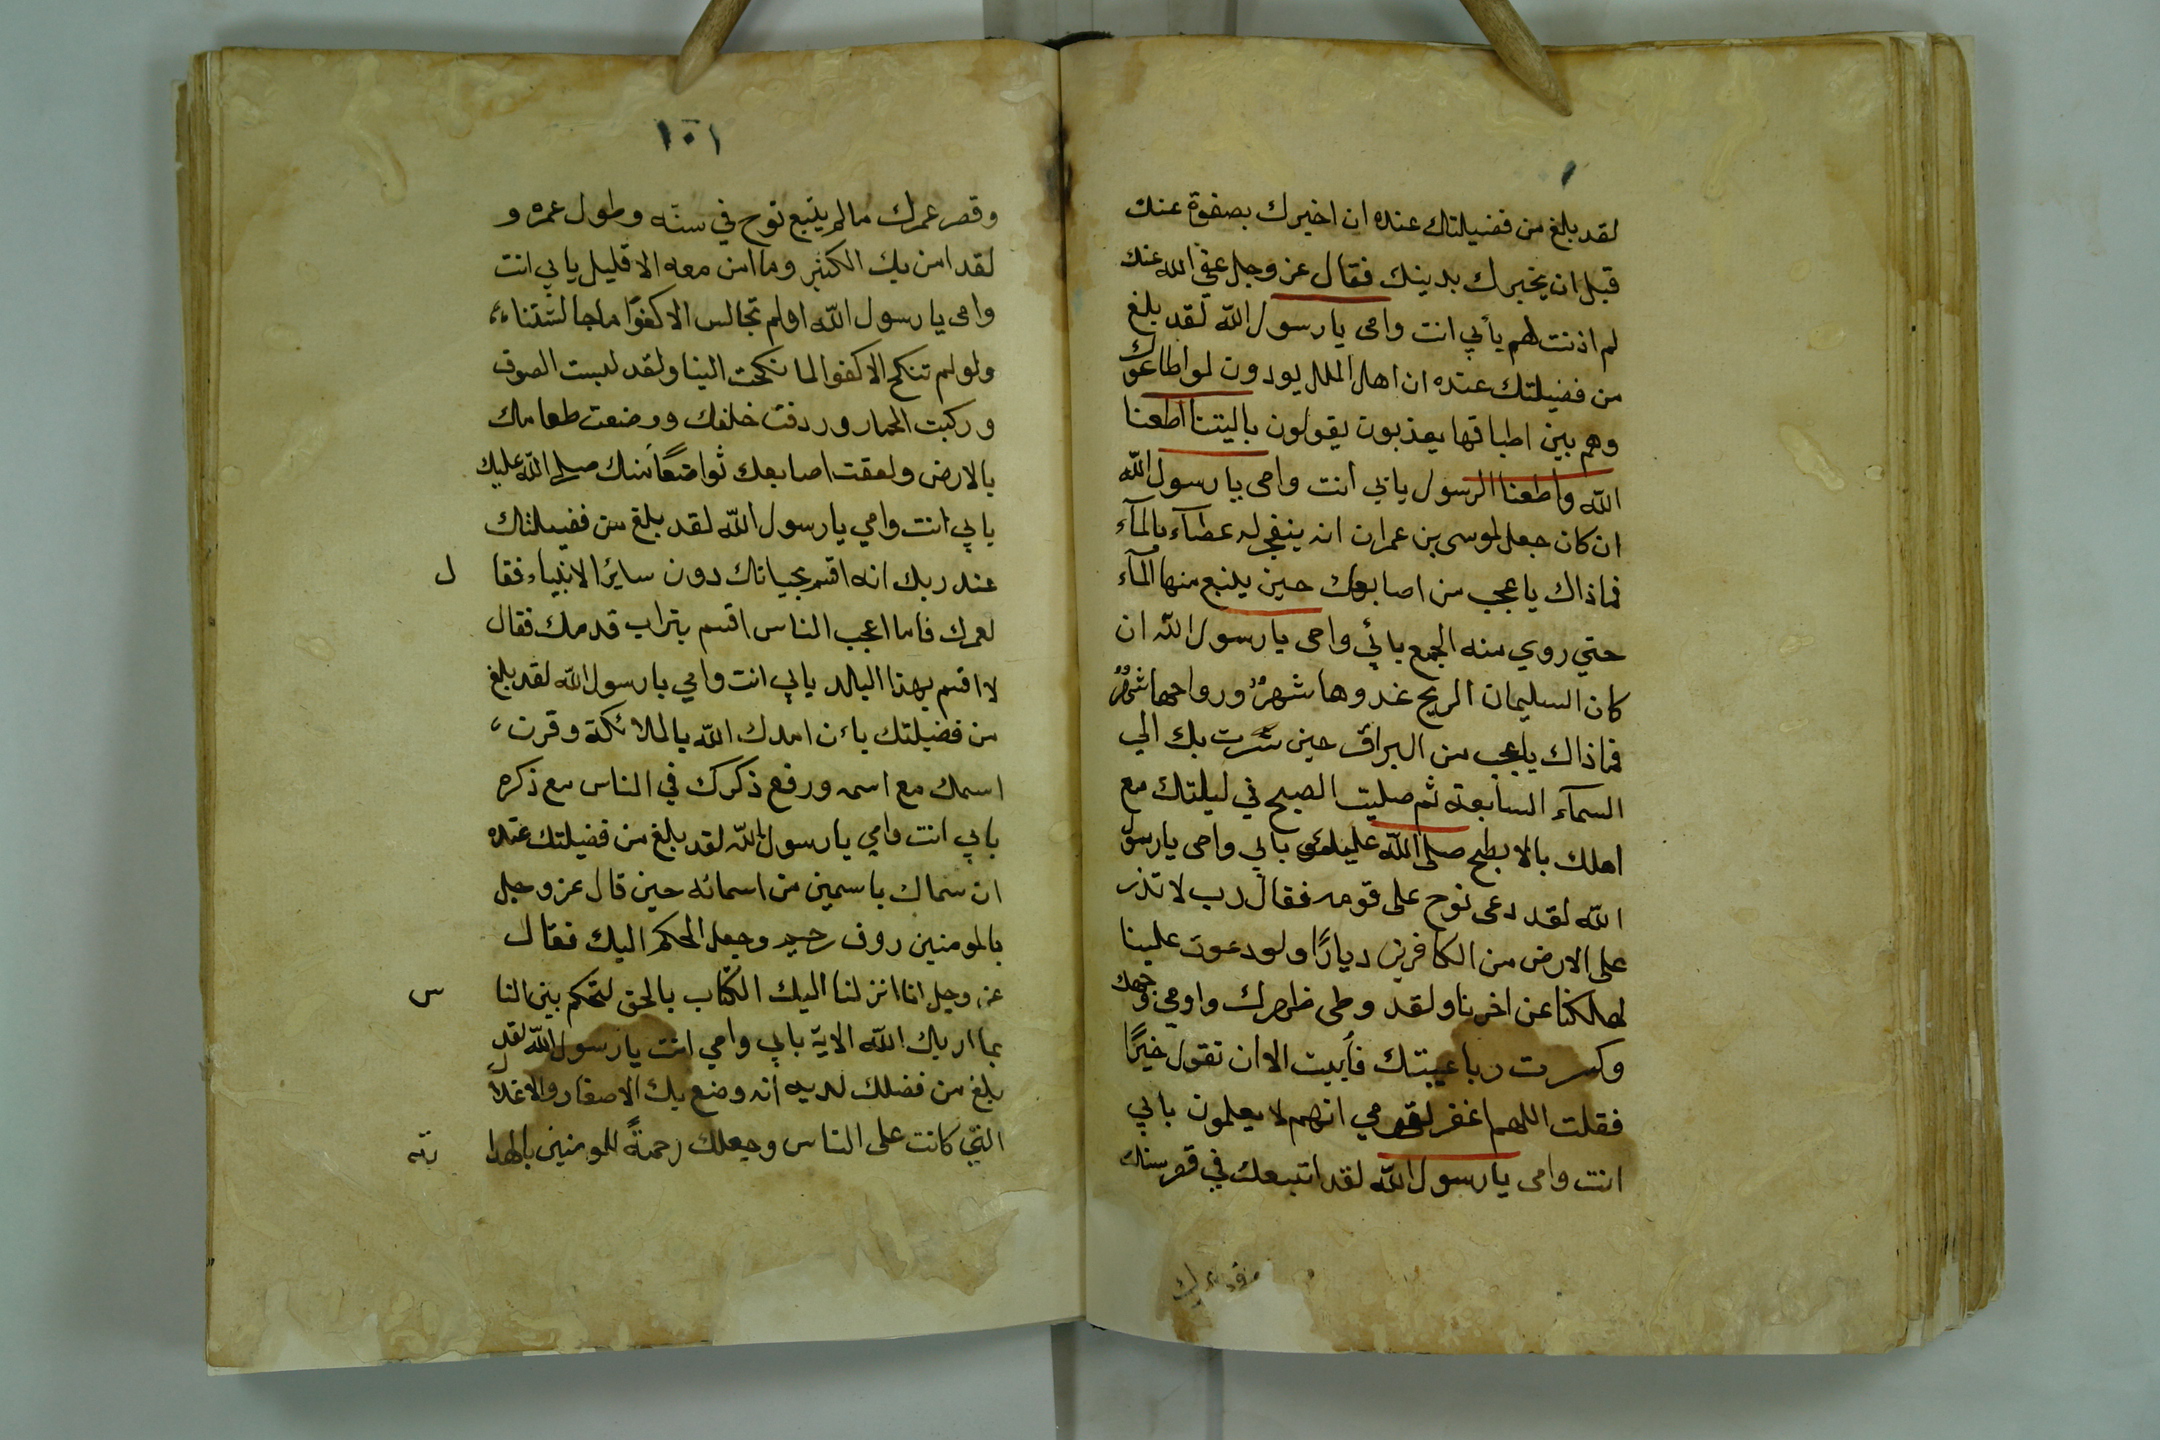 لقد بلغ من فضيلتك عنده ان اخبرك بصفوة عنك
قبل ان يخبرك بدينك فقال عز وجل عفى الله عنك
لم اذنت لهم يأبي انت وامى يا رسول الله لقد بلغ
من فضيلتك عنده ان اهل الملل يودون لو اطاعوك
وهم بين اطباقها يعذبون يقولون ياليتنا اطعنا
الله واطعنا الرسول يابي انت وامى يا رسول الله
ان كان جعل لموسى بن عمران انه ينفجر له عصاء بالمآء
فماذاك ياعجب من اصابعك حين ينبع منها المآء
حتي روي منه الجمع بابي وامى يا رسول الله ان
كان السليمان الريح غدوها شهرٌ ورواحها شهرٌ
فماذاك ياعجب من البراق حين سرت بك الي
السمآء السابعة ثم صليت الصبح في ليلتك مع
اهلك بالابطح صلى الله عليك بابي وامى يا رسول
الله لقد دعى نوح على قومه فقال رب لا تذر
على الارض من الكافرين ديارًا ولو دعوت علينا
لهلكنا عن اخرنا ولقد وطى ظهرك واومي وجهك
وكسرت رباعيتك فأبيت الا ان تقول خيرًا
فقلت اللهم اغفر لقومي انهم لا يعلمون بابي
انت وامى يا رسول الله لقد اتبعك في قصر سنك
١٥١
وقصر عمرك مالم يتبع نوح في سنه وطول عمره و
لقد امن بك الكثير وما امن معه الا قليل يابي انت
وامى يا رسول الله اولم تجالس الا كفوًا ما جالستناء
ولو لم تنكح الا كفوا لما نكحت الينا ولقد لبست الصوف
وركبت الحمار وردفت خلفك ووضعت طعامك
بالارض ولعقت اصابعك تواضعًا منك صلى الله عليك
يابي انت وامي يا رسول الله لقد بلغ من فضيلتك
عند ربك انه اقسم بحياتك دون ساير الانبياء فقا ل
لعمرك فاما اعجب الناس اقسم بتراب قدمك فقال
لا اقسم بهذا البلد يابي انت وامي يا رسول الله لقد بلغ
من فضيلتك بان امدك الله بالملائكة وقرن
اسمك مع اسمه ورفع ذكرك في الناس مع ذكره
بابي انت وامي يا رسول الله لقد بلغ من فضيلتك عنده
ان سماك باسمين من اسمائه حين قال عز وجل
بالمومنين روف رحيم وجعل الحكم اليك فقال
عز وجل انا انزلنا اليك الكتاب بالحق لتحكم بين النا س
بما اريك الله الاية بابي وامي انت يا رسول الله لقد
بلغ من فضلك لديه انه وضع بك الاصفار والاغلال
التي كانت على الناس وجعلك رحمةً للمومنين بالهدا يته